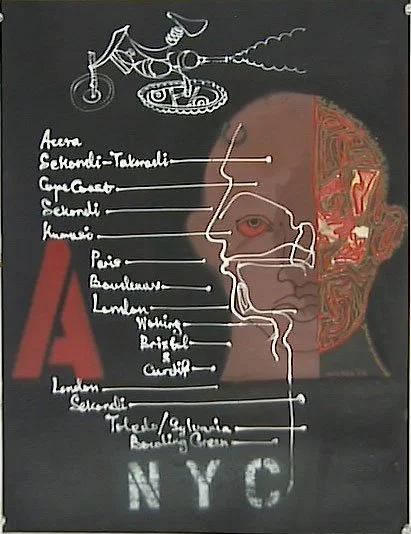 Accra
Sekondi-Takoradi
Cape Coast
Sekondi
Kumasi
Paris
Bourdeaux
London
Woking
Bristol
&
Cardiff
London
Sekondi
Toledo/Sylvania
Bowling Green
A
NYC